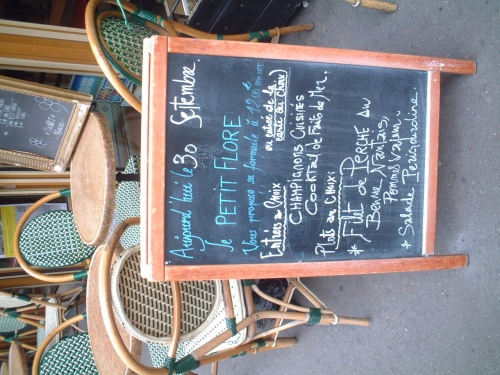 Aujourd'hui le 30 Septembre.
Le PETIT FLORE
Vous propose sa formule à
Entrées au choix
ou entrée de la
carte au choix)
CHAMPIGNONS CUISINES
COCKTAIL de Fruits de Mer.
Plats au choix:
* Filet DE PERCHE AU
Beurre Nantais,
Pommes Vapeur.
* Salade Perigourdine.